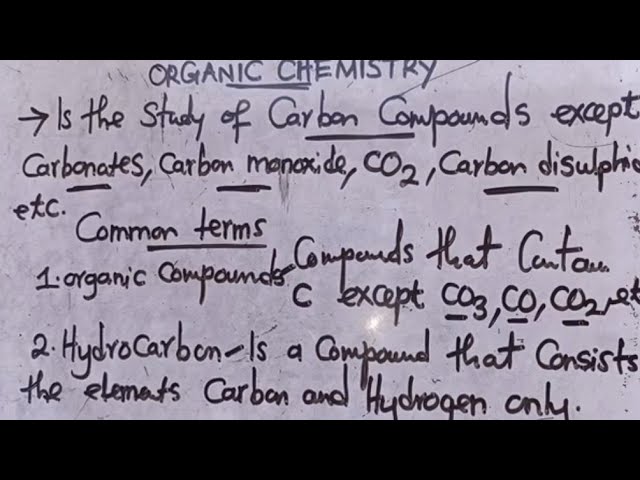 ORGANIC CHEMISTRY
→ Is the study of Carbon Compounds except
Carbonates, Carbon monoxide, CO2, Carbon disulphid
etc.
Common terms
1. organic Compounds - Compounds that Contain
C except CO3, CO, CO2, et
2. HydroCarbon - Is a Compound that Consists
the elements Carbon and Hydrogen only.